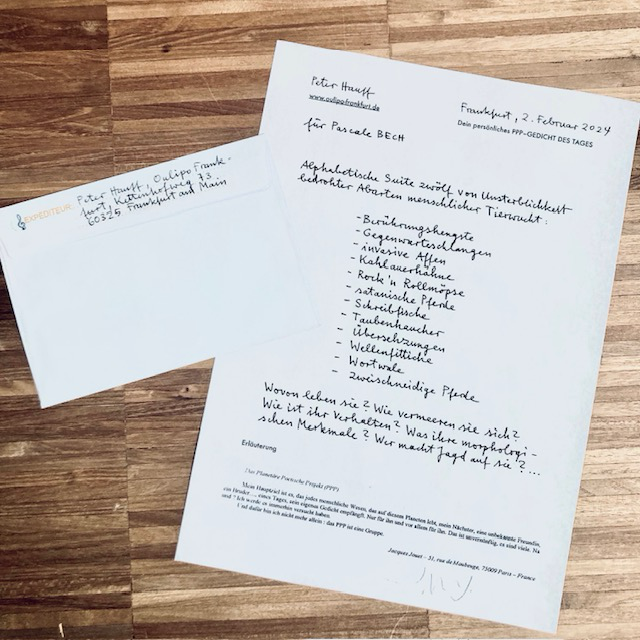 EXPEDITEUR
Peter Hauff, Oulipo Frank=
furt, Kettenhofweg 73
60325 Frankfurt am Main
Peter Hauff
www.oulipofrankfurt.de
Frankfurt, 2. Februar 2024
Dein persönliches PPP-GEDICHT DES TAGES
für Pascale BECH
Alphabetische Suite zwölf von Unsterblichkeit
bedrohter Abarten menschlicher Tierwucht:
- Berührungshengste
- Gegenwartsschlangen
- invasive Affen
- Kahlauerhähne
- Rock'n Rollmöpse
- satanische Pferde
- Schreibfische
- Taubenhaucher
- Übersehzungen
- Wellenfittiche
- Wortwale
- zweischneidige Pferde
Wovon leben sie? Wie vermaeren sie sich?
Wie ist ihr Verhalten? Was ihre morphologi-
schen Merkmale? Wer macht Jagd auf sie?...
Erläuterung
Das Planetäre Poetische Projekt (PPP)
Mein Hauptziel ist es, das jedes menschliche Wesen, das auf diesem Planeten lebt, mein Nächster, eine unbekannte Freundin,
ein Bruder ... eines Tages, sein eigenes Gedicht empfängt. Nur für ihn und vor allem für ihn. Das ist unvernünftig, es sind viele. Na
und? Ich werde es immerhin versucht haben.
Und dafür bin ich nicht mehr allein: das PPP ist eine Gruppe.
Jacques Jouet – 31, rue de Maubeuge, 75009 Paris – France